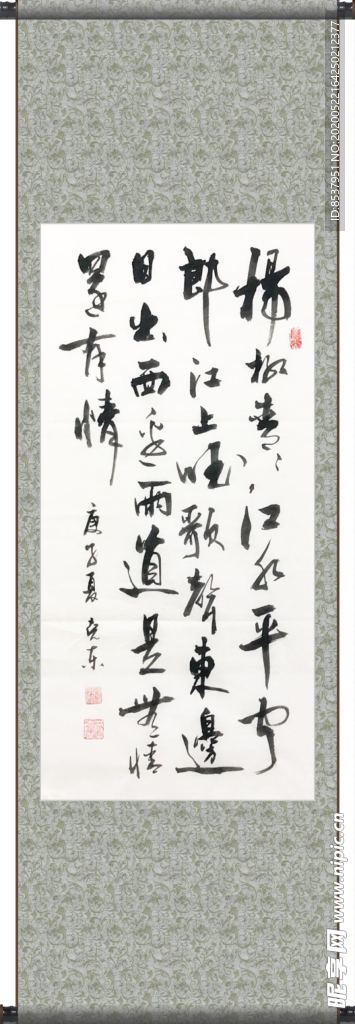 楊柳青〻江水平闻
郎江上唱歌聲東邊
日出西邊雨道是無情
還有情
庚子夏 克东
ID:8537951 NO:20200522164250212377
昵享网 www.nipic.cn